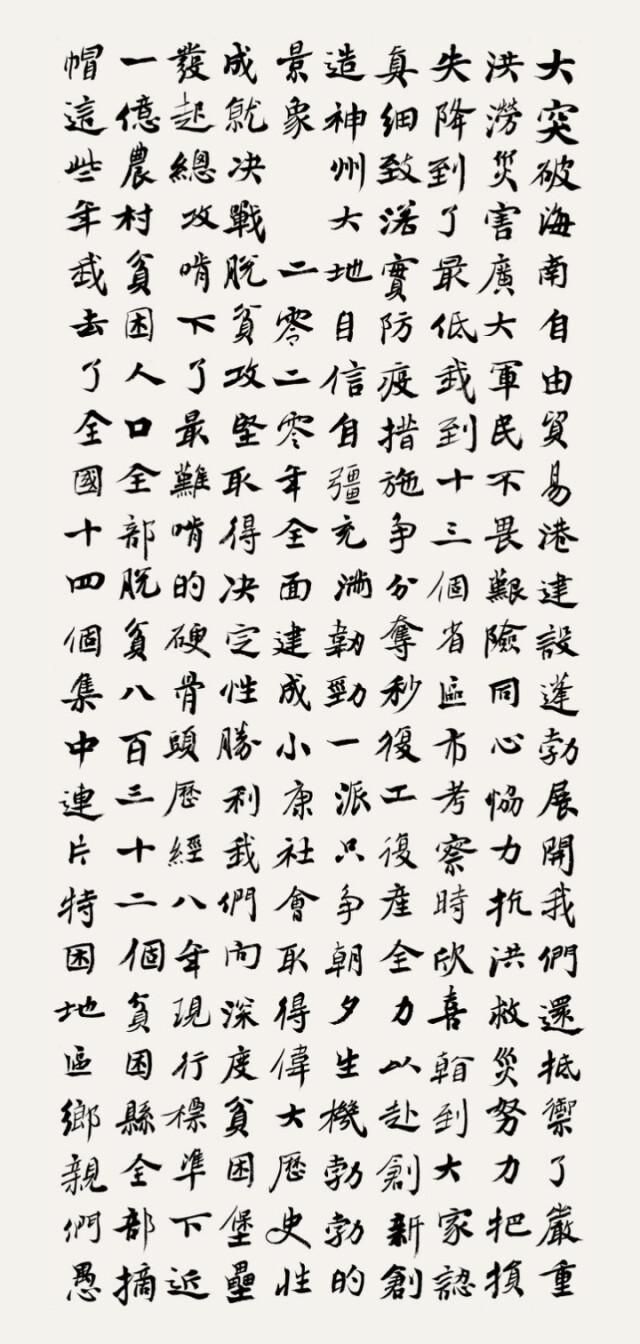 大突破海南自由貿易港建設蓬勃展開我們還抵禦了嚴重
洪澇災害廣大軍民不畏艱險同心協力抗洪救災努力把損
失降到了最低我到十三個省區市考察時欣喜看到大家認
真細致落實防疫措施争分奪秒復工復産全力以赴創新創
造神州大地自信自彊充滿韌勁一派只争朝夕生機勃勃的
景象
二零二零年全面建成小康社會取得偉大歷史性
成就决戰脱貧攻堅取得决定性勝利我們向深度貧困堡壘
發起總攻啃下了最難啃的硬骨頭歷經八年現行標準下近
一億農村貧困人口全部脱貧八百三十二個貧困縣全部摘
帽這些年我去了全國十四個集中連片特困地區鄉親們愚